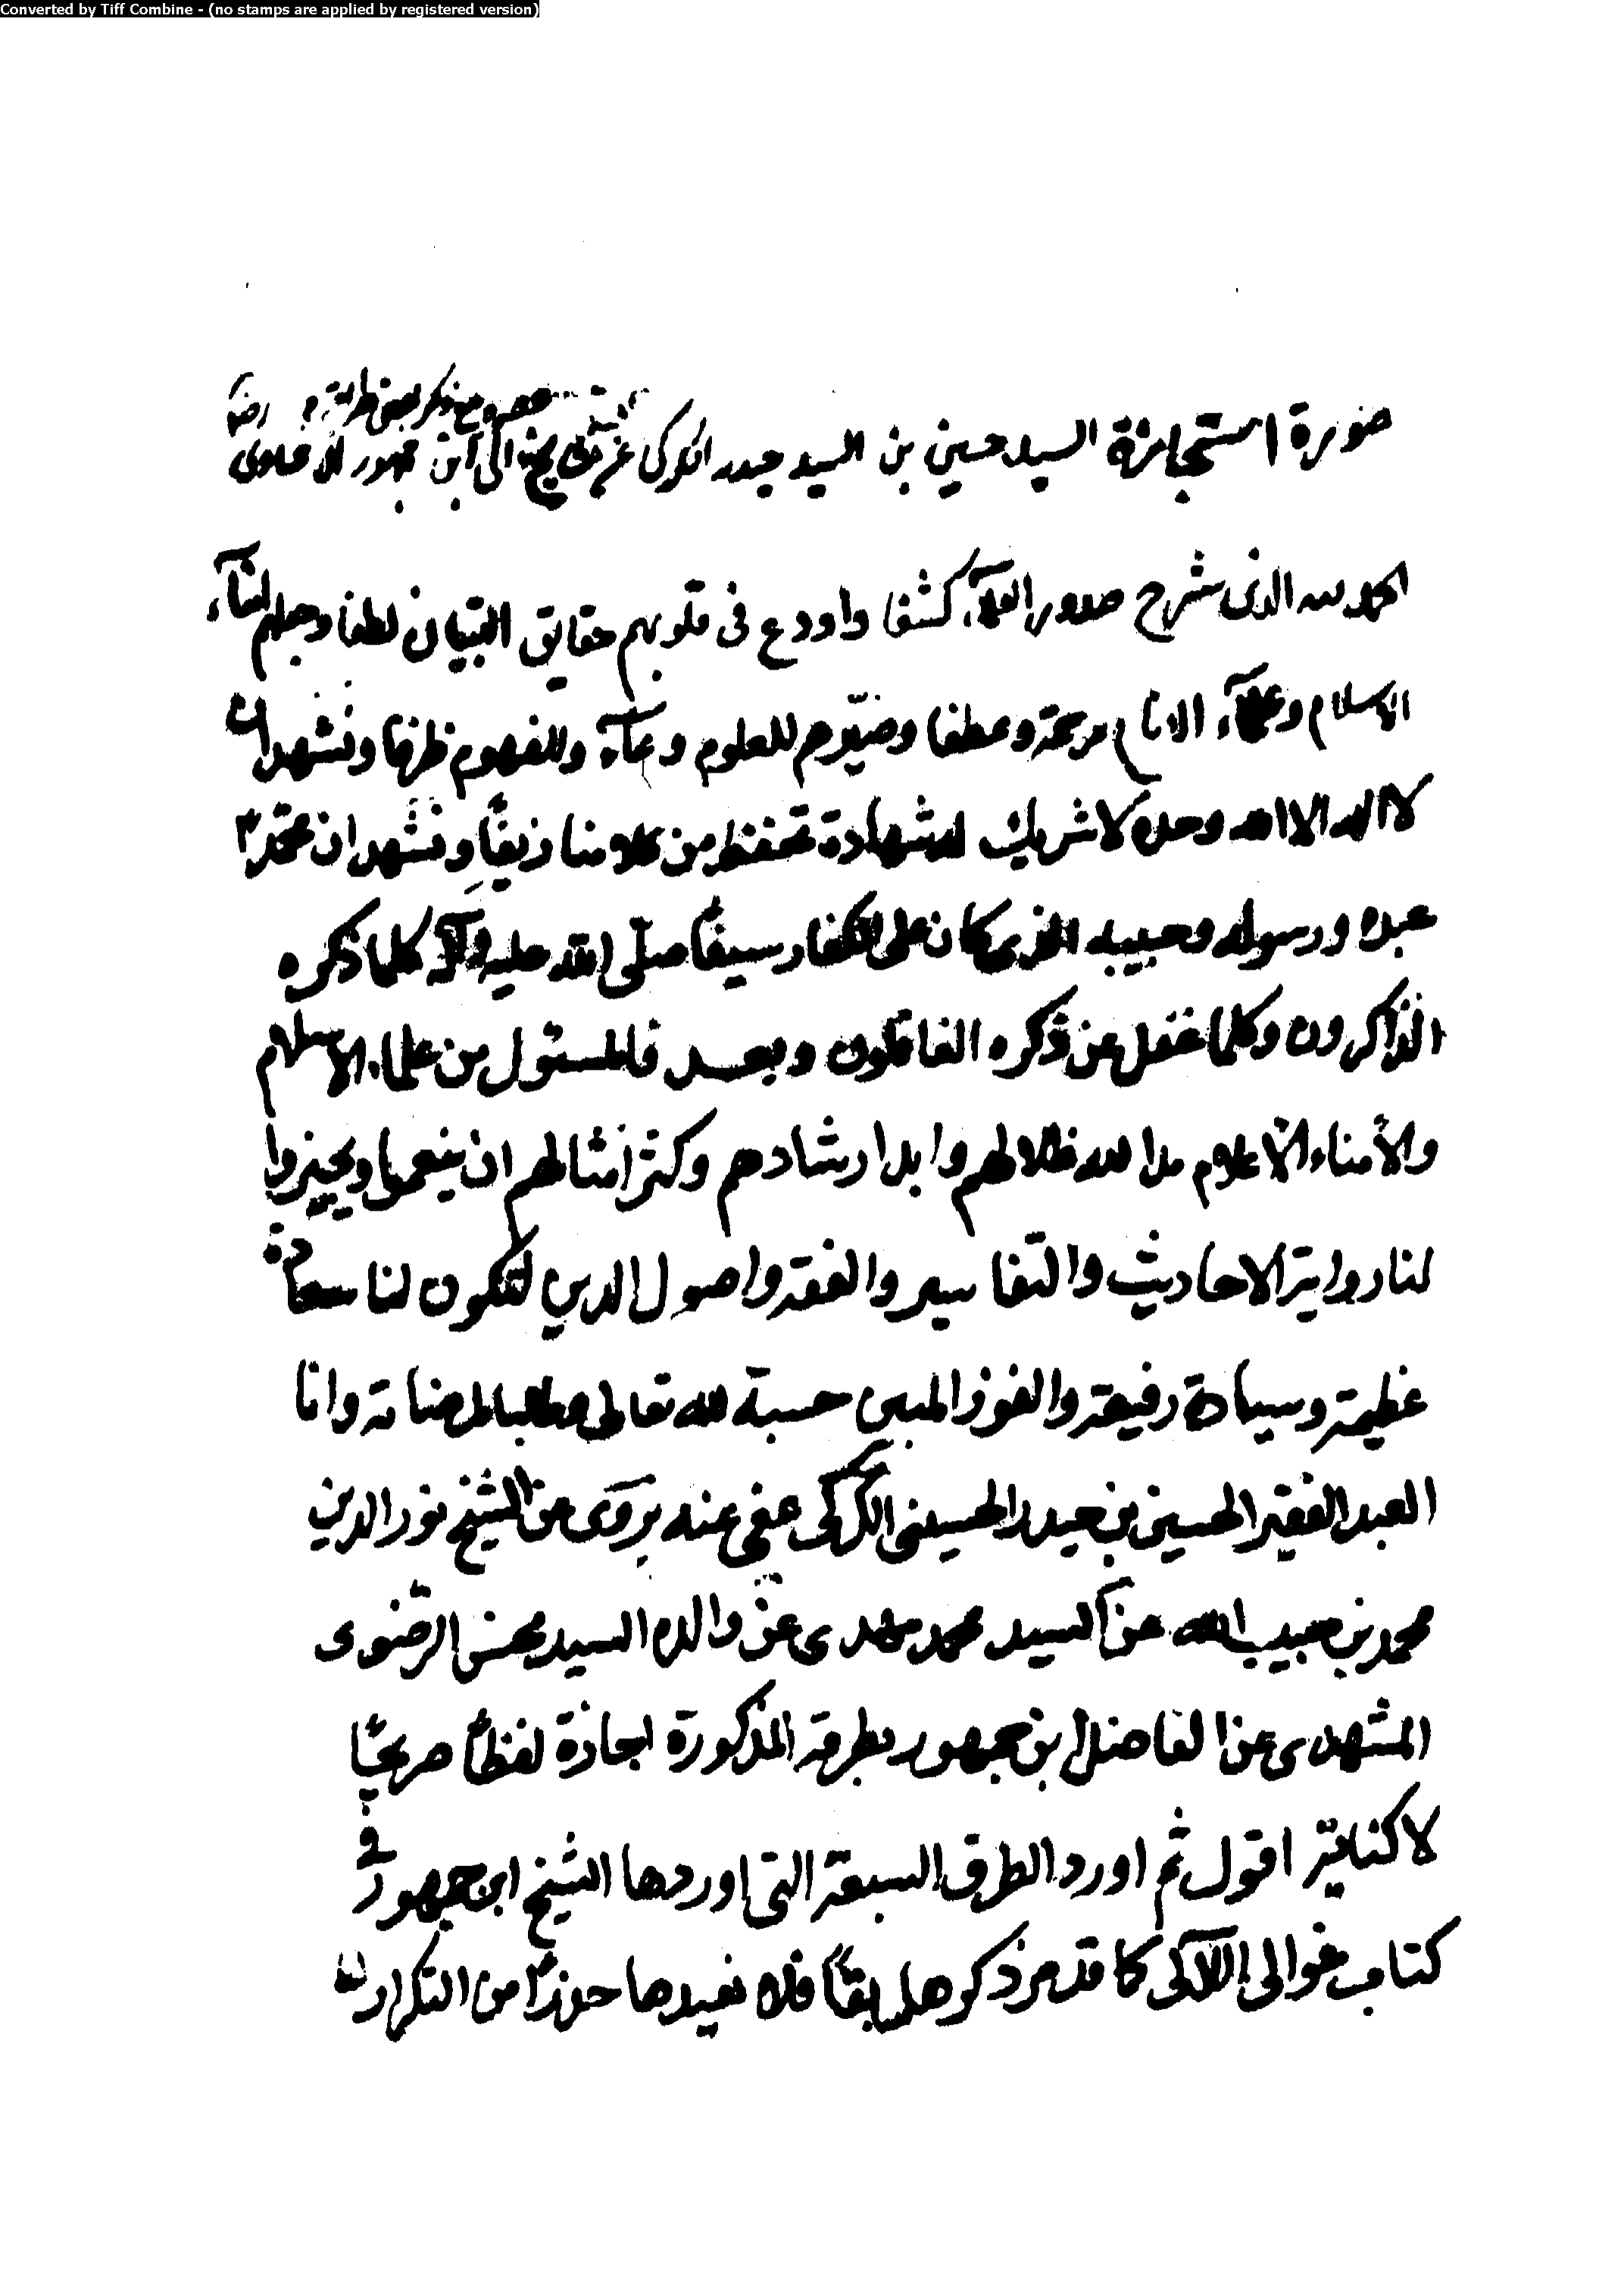 Converted by Tiff Combine - (no stamps are applied by registered version)
مع ذكر بعض طرقه
صورة استجازة السيد حسين بن السيد حيدر الكركي عن الى ابن جمهور
الحمد لله الذى شرح صدور العلمآء كشفا واودع فى قلوبهم حقايق التبيان لطفا وجعلهم امنآء
الاسلام وعلمآء الانام مرحمة وعطفا وصيّرهم للعلوم وعآء وللفهوم ظرفا ونشهد ان
لا اله الا الله وحده لا شريك له شهادة تحفظ من كلامنا زيفًا ونشهد ان محمّدًا
عبده ورسوله وحبيبه الذى كان على الكفار سيفًا صلّى الله عليه وآله كلما ذكره
الذاكرون وكلما غفل عن ذكره الغافلون وبعد فالمسئول من علماء الاسلام
والأمناء الاعلام مد الله ظلالهم وابد ارشادهم وكثر امثالهم ان ينعموا ويجيزوا
لنا رواية الاحاديث والتفاسير والفقه واصول الدين لتكون لنا سعادة
عظيمة وسيادة رفيعة والفوز المبين حسبة لله تعالى وطلبا لمرضاته وانا
العبد الفقير الحسين بن حيدر الحسينى الكركى عفى عنه نروى عن الشيخ نور الدين
محمد بن حبيب الله عن السيد محمد مهدى عن والده السيد محسن الرضوى
المشهدى عن الفاضل ابن جمهور بطرقه المذكورة اجازة لفظًا صريحًا
لا كناية اقول ثم اورد الطرق السبعة التى اوردها الشيخ ابن جمهور فى
كتاب غوالى اللآلى كما قد مر ذكرها سابقًا فلا نعيدها حذرًا من التكرار